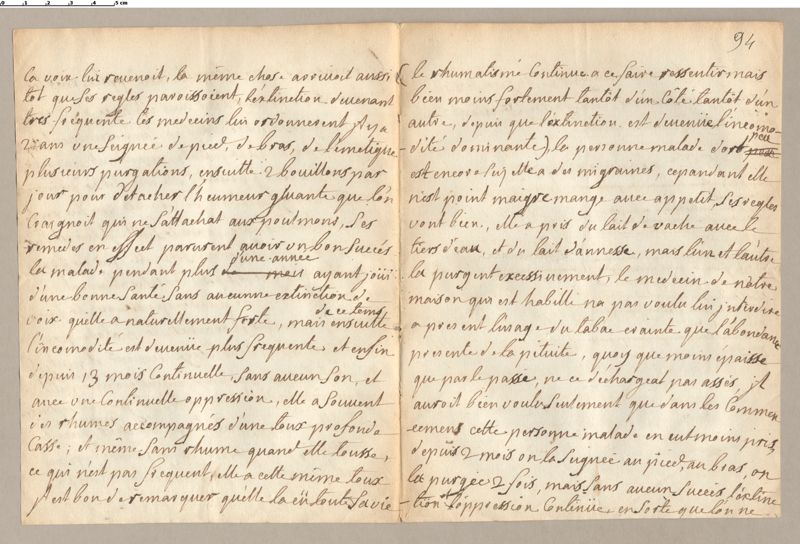 ,0 ,1 ,2 ,3 ,4 ,5 cm
94
la voix lui revenoit, la même chose arrivoit aussi
tot que ses regles paroissoient, l'extinction devenant
tres frequente les medecins lui ordonnerent il y a
2 ans une seignée de pied, de bras, de l'emetique
plusieurs purgations, ensuitte 2 bouillons par
jour pour détacher l'humeur gluante que l'on
craignoit qui ne s'attachat aux poulmons, ses
remedes en effect parurent avoir un bon succés
d'une année
la malade pendant plus de mois ayant joüi
d'une bonne santé sans aucunne extinction de
de ce tems
voix qu'elle a naturellement forte, mais ensuitte
l'incomodité est devenüe plus frequente et enfin
depuis 13 mois continuelle, sans aucun son, et
avec une continuelle oppression, elle a souvent
des rhumes accompagnés d'une toux profonde
casse; et même sans rhume quand elle tousse,
ce qui n'est pas frequent, elle a cette même toux
il est bon de remarquer qu'elle la eü toute sa vie
(le rhumatisme continue a ce faire ressentir mais
bien moins fortement tantôt d'un côté tantôt d'un
autre, depuis que l'extinction est devenüe l'incomo-
peu
dité dominante), la personne malade dort
est encore sujette a des migraines, cependant elle
n'est point maigre mange avec appetit, ses regles
vont bien, elle a pris du lait de vache avec le
tiers d'eau, et du lait d'annesse, mais l'un et l'autre
la purgent excessivement, le medecin de nôtre
maison qui est habille na pas voulu lui interdire
a present l'usage du tabac crainte que l'abondance
presente de la pituite, quoy que moins epaisse
que par le passé, ne ce déchargeat pas assés, il
auroit bien voulu seulement que dans les commen
cemens cette personne malade en eut moins pris,
depuis 2 mois on la sugnée au pied, au bras, on
la purgée 2 fois, mais sans aucun succés l'extinc
tion et l'oppression continüe en sorte que l'on ne